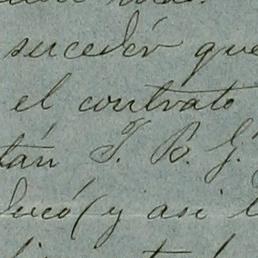 suceder que
el contrato
tán J. B. G.
ducó (y asi l